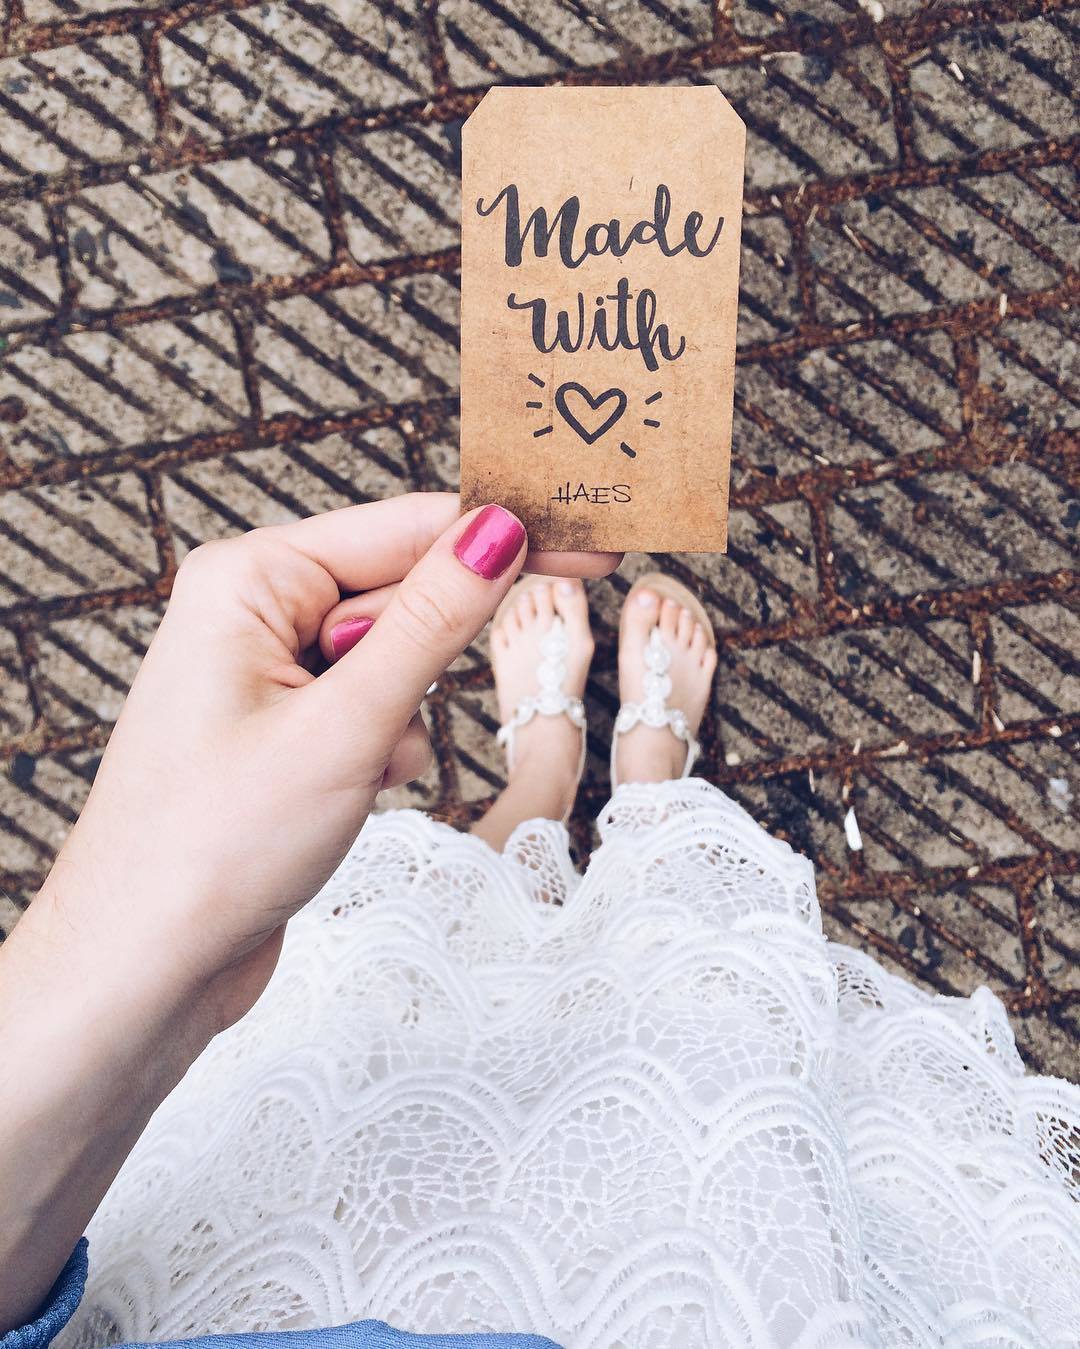 Made
With
HAES